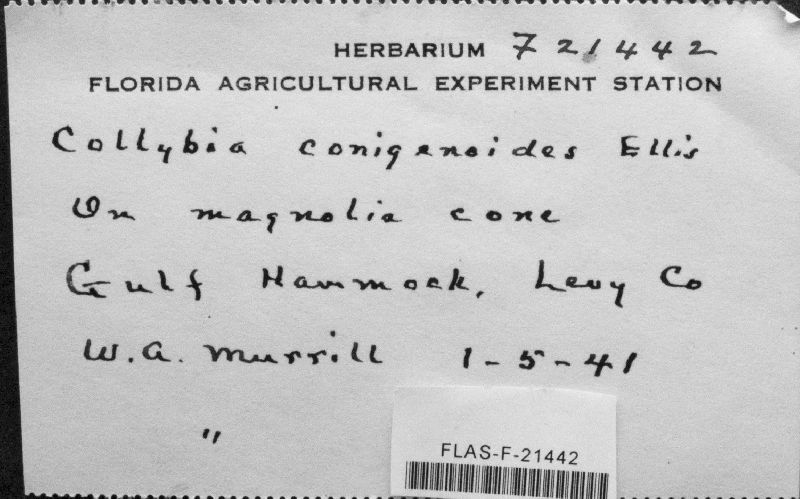 HERBARIUM F21442
FLORIDA AGRICULTURAL EXPERIMENT STATION
Collybia conigenoides Ellis
On magnolia cone
Gulf Hammock, Levy Co
W. A. Murrill 1-5-41
"
FLAS-F-21442